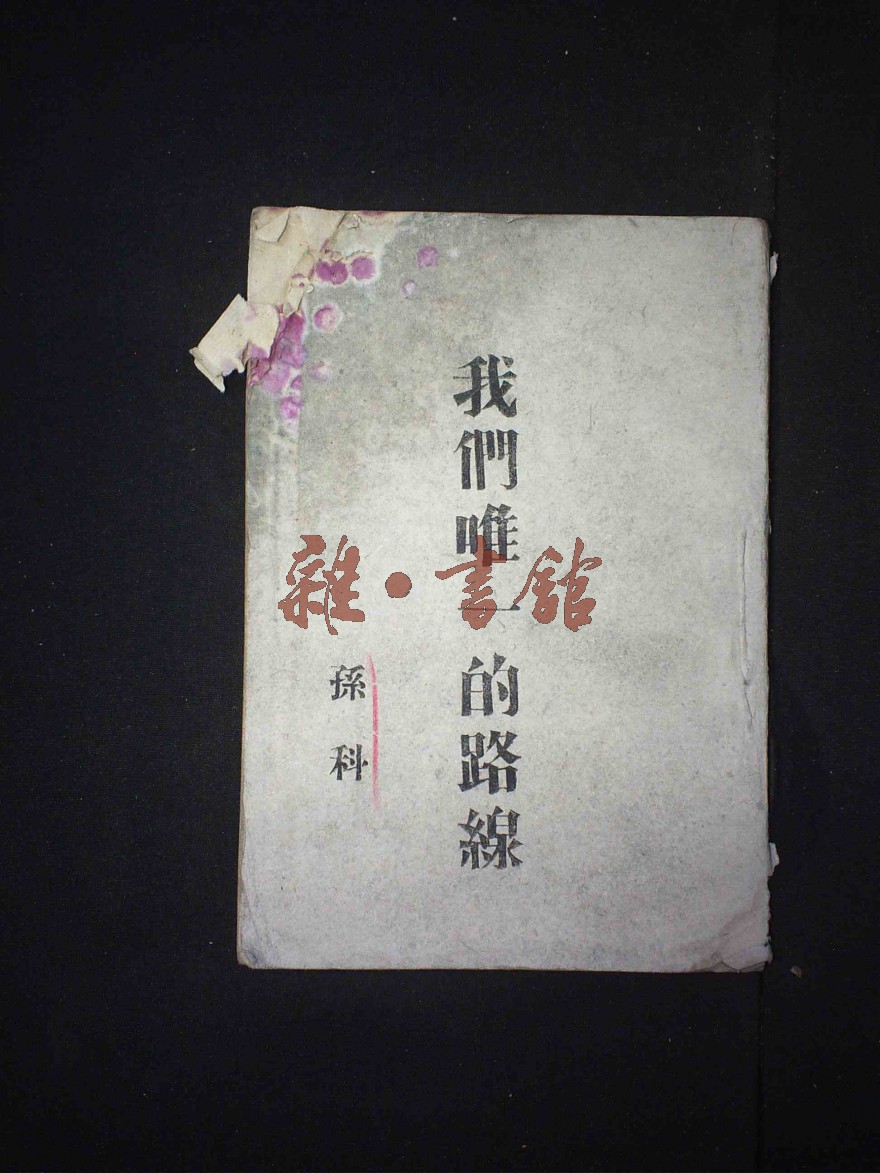 我們唯一的路線
孫科
雜·書館